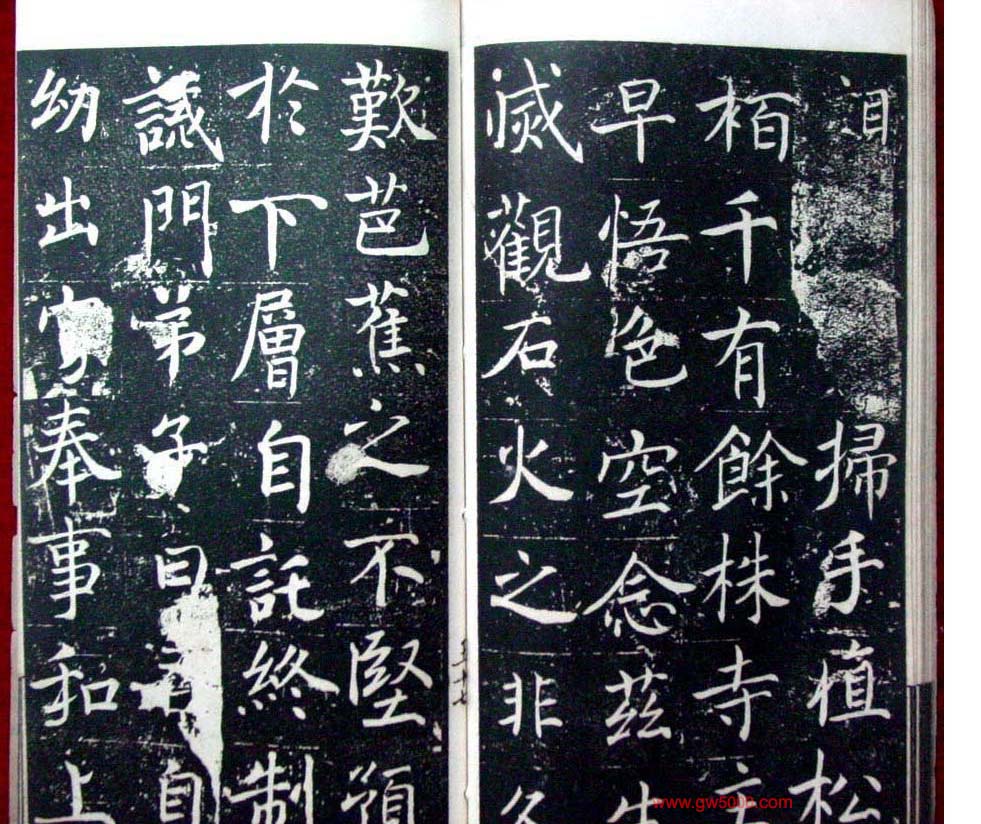 掃手植松
栢千有餘株寺
早悟色空念茲
滅觀石火之非久
歎芭蕉之不堅
於下層自託終制
誡門弟子曰 自
幼出家奉事和上
www.gw500